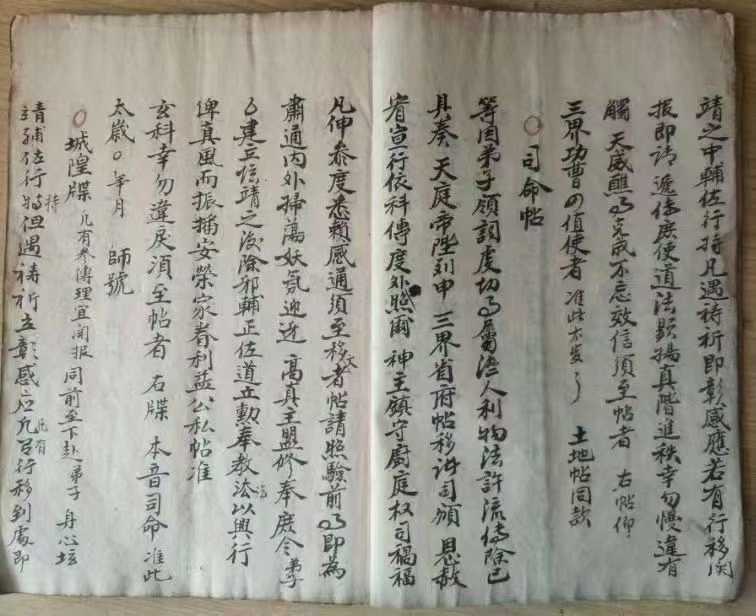 靖之中輔佐行持凡遇祷祈即彰感應若有行移関
报即請遞傳庶使道法顕揚真階進秩幸勿慢違有
觸天威醮事完成不忘效信須至帖者 右帖仰
三界功曹の值使者 准此本発了 土地帖同款
○司命帖
等因弟子領詞虔切事属濟人利物法許流傳除已
具奏 天庭帝陛列申 三界省府帖移諸司頒 恩赦
省宣行依科傳度外照爾 神主鎮守廚庭权司禍福
凡伸叅度悉賴感通須至移文者帖請照驗前事即為
肅通内外掃蕩妖氛迎迓 高真主盟修奉庶令弟子
㠯建立坛靖之後除邪輔正佐道立勲奉教法以興行
俾真風而振揚安榮家眷利益公私帖准
玄科幸勿違戾須至帖者 右牒 本音司命 准此
太歲○年月 師號
○城隍牒 凡有叅傳理宜関报同前至下赴弟子身心坛
靖輔佐行持但遇祷祈立彰感应凡有行移到處即